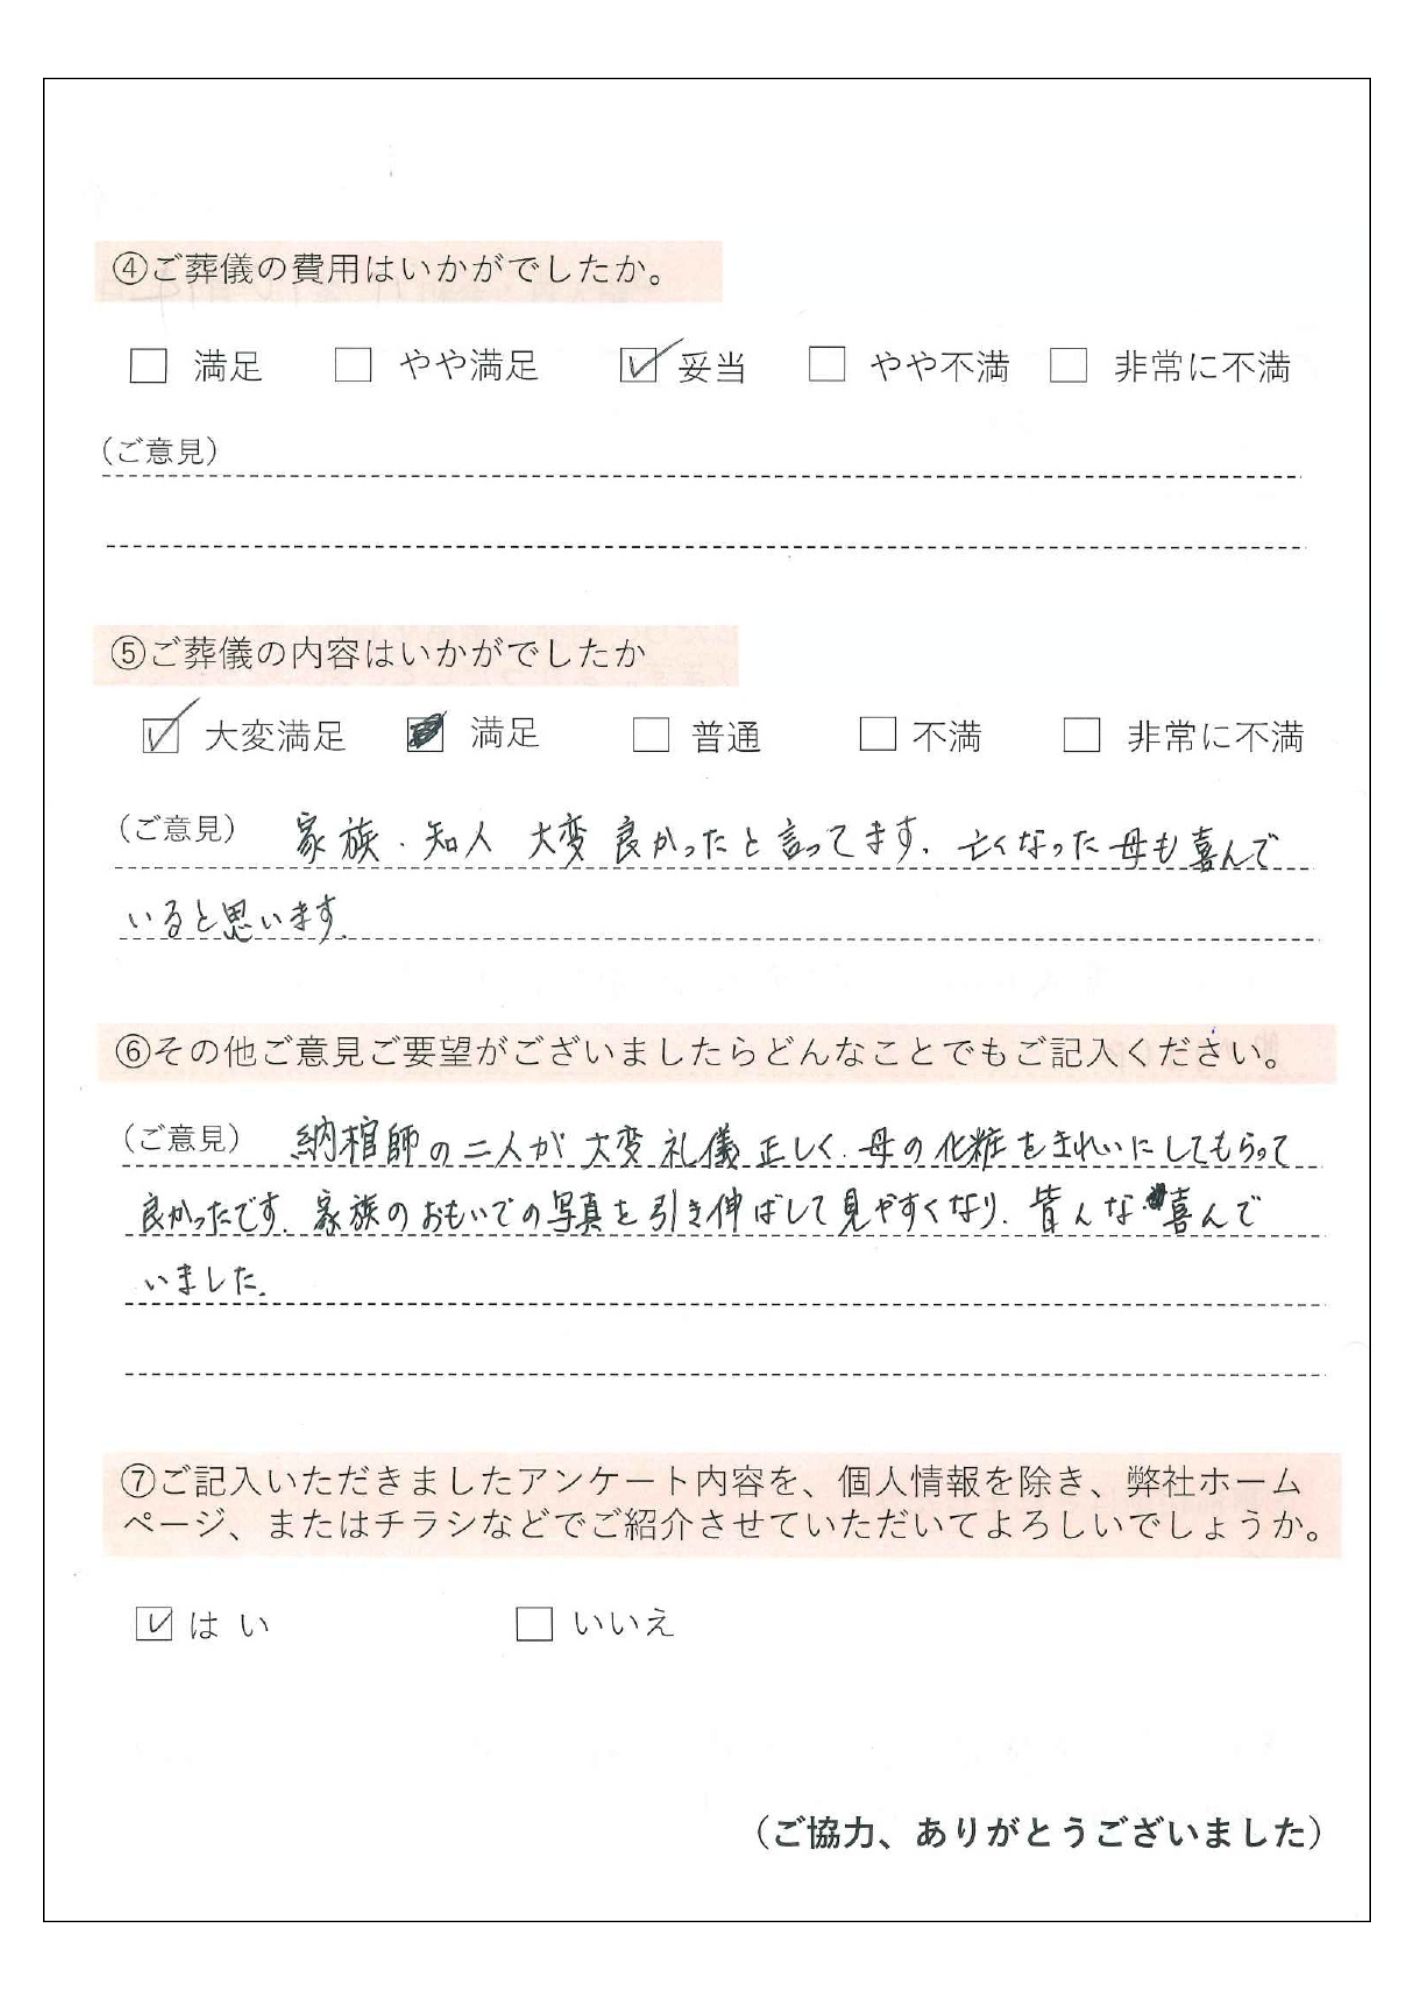 ④ご葬儀の費用はいかがでしたか。
□ 満足 □ やや満足 ☑ 妥当 □ やや不満 □ 非常に不満
（ご意見）
⑤ご葬儀の内容はいかがでしたか
☑ 大変満足 ■ 満足 □ 普通 □ 不満 □ 非常に不満
（ご意見） 家族・知人 大変良かったと言ってます．亡くなった母も喜んで
いると思います．
⑥その他ご意見ご要望がございましたらどんなことでもご記入ください。
（ご意見） 納棺師の二人が大変礼儀正しく．母の化粧をきれいにしてもらって
良かったです．家族のおもいでの写真を引き伸ばして見やすくなり．皆んな喜んで
いました．
⑦ご記入いただきましたアンケート内容を、個人情報を除き、弊社ホーム
ページ、またはチラシなどでご紹介させていただいてよろしいでしょうか。
☑ はい □ いいえ
（ご協力、ありがとうございました）